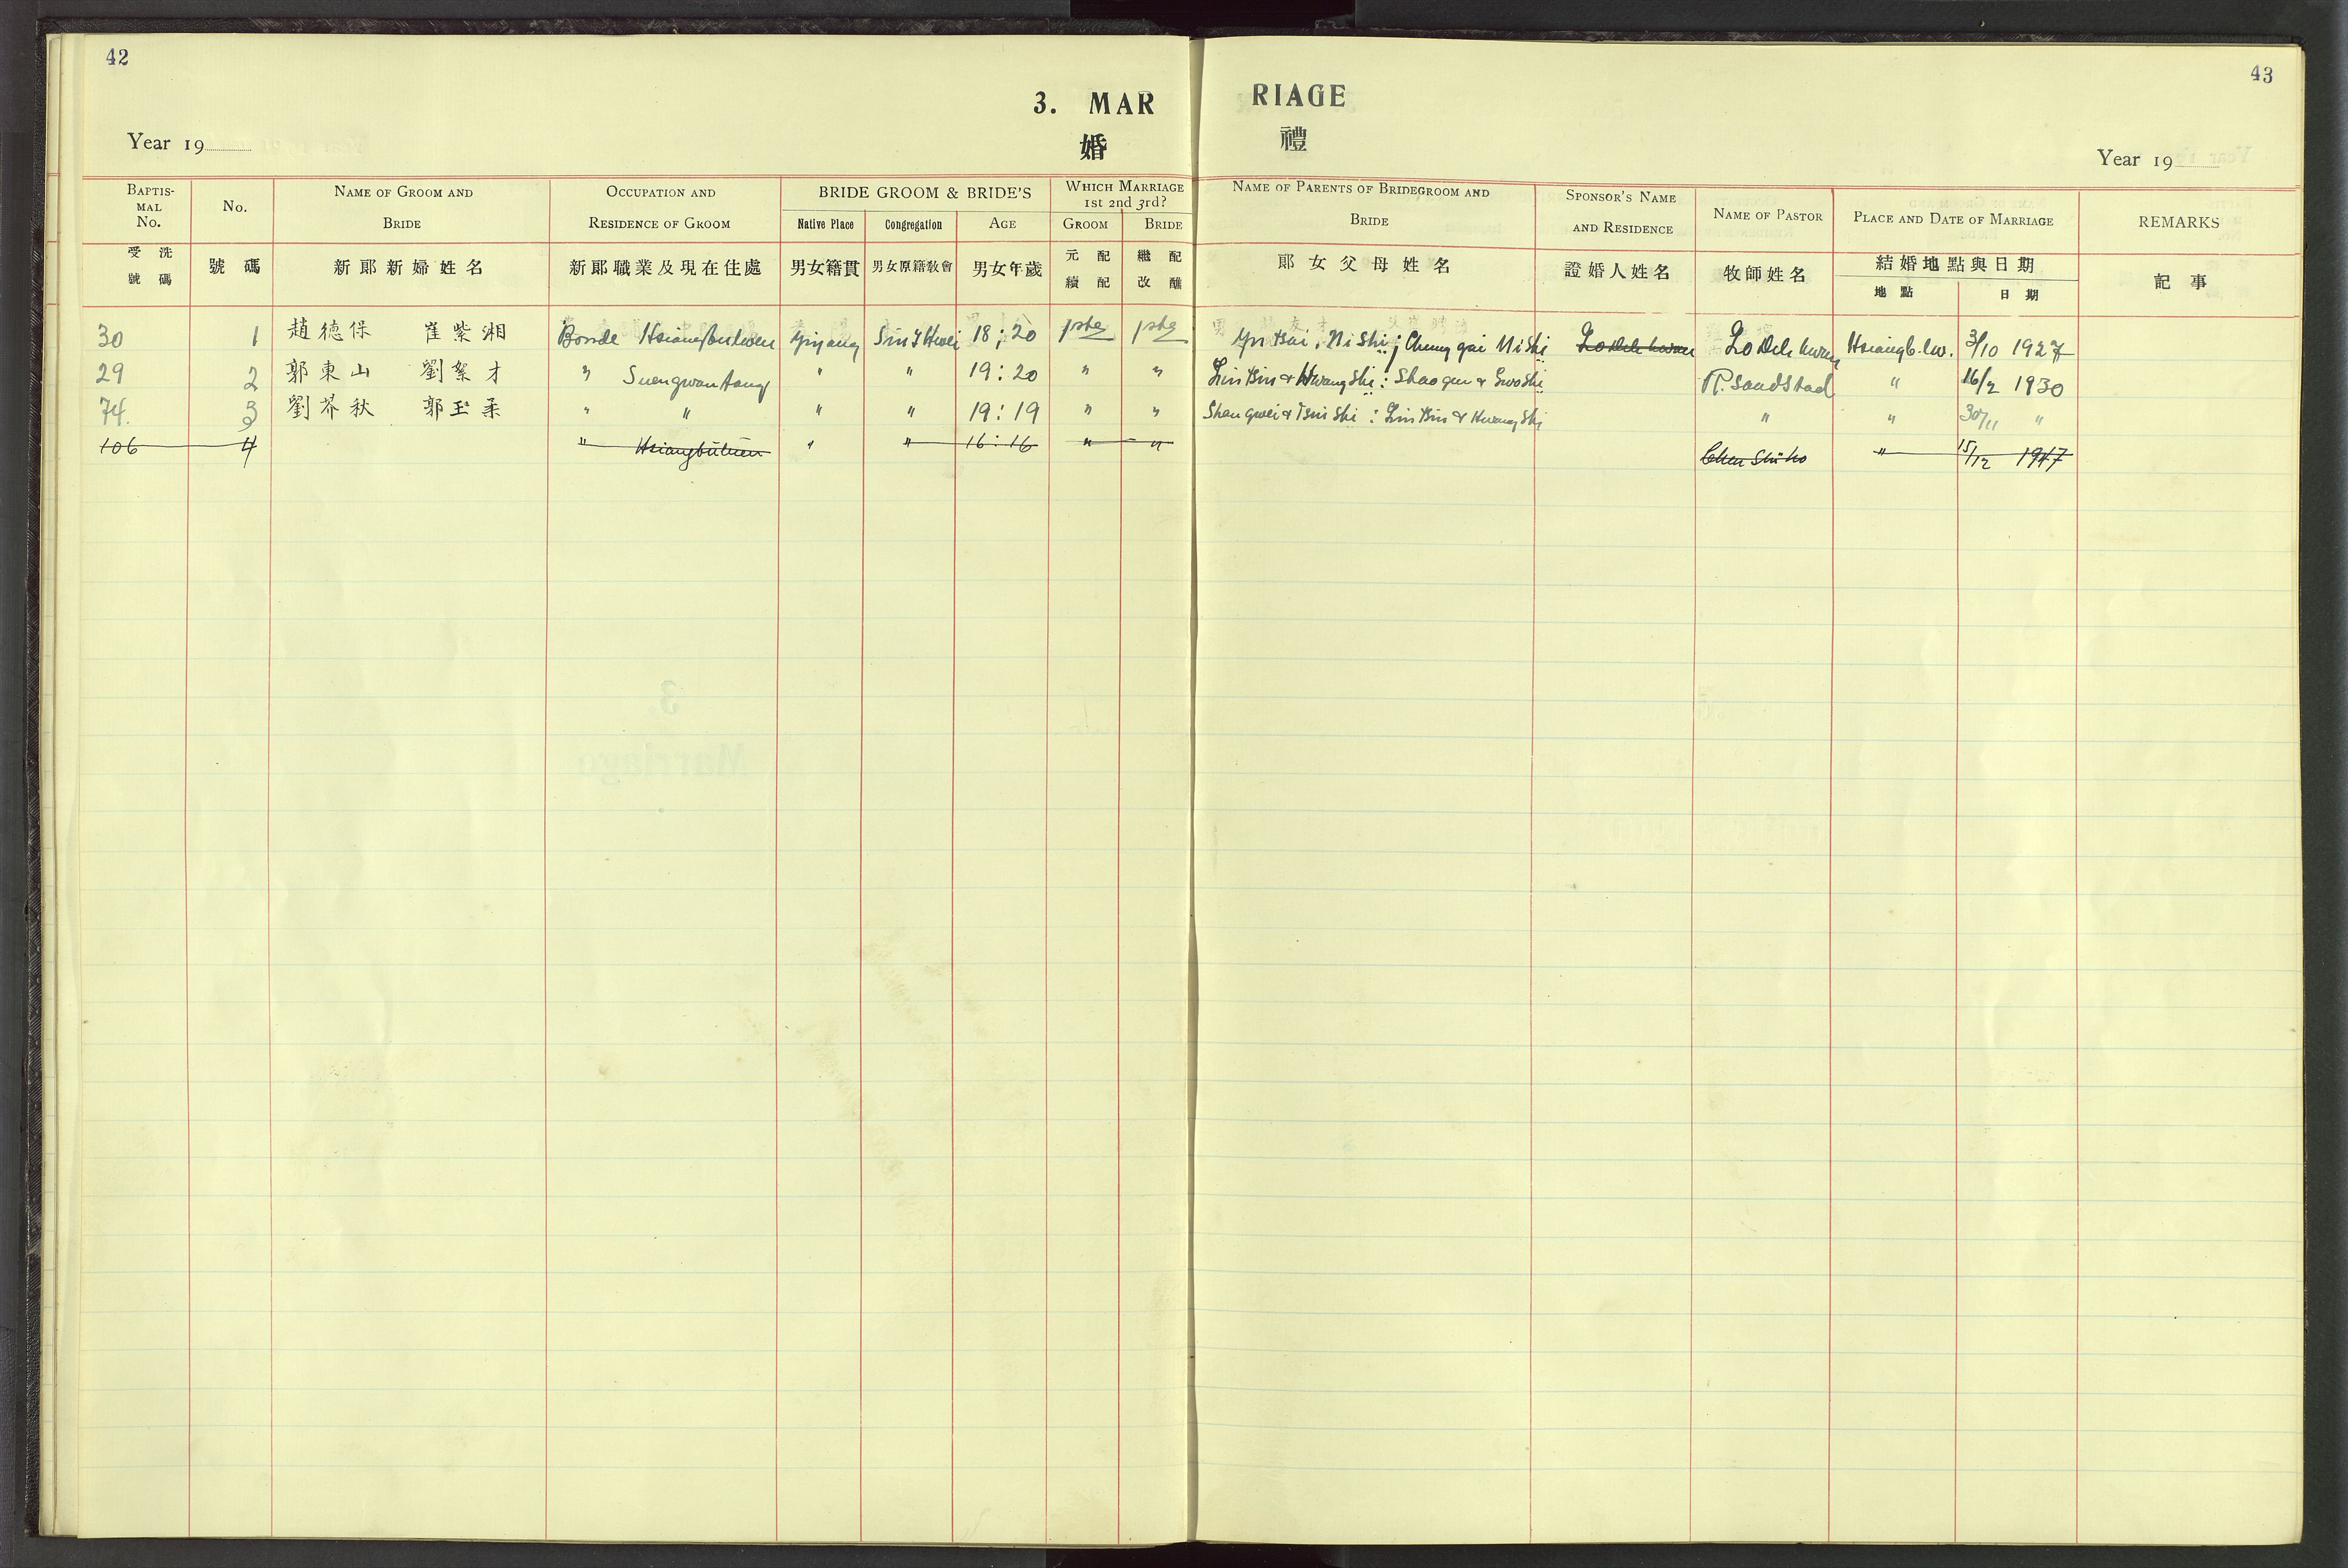 42
43
3. MARRIAGE
婚 禮
Year 19
Year 19
BAPTISMAL No. No. NAME OF GROOM AND BRIDE OCCUPATION AND RESIDENCE OF GROOM BRIDE GROOM & BRIDE'S Native Place Congregation AGE WHICH MARRIAGE 1st 2nd 3rd? GROOM BRIDE NAME OF PARENTS OF BRIDEGROOM AND BRIDE SPONSOR'S NAME AND RESIDENCE NAME OF PASTOR PLACE AND DATE OF MARRIAGE REMARKS
受洗號碼 號碼 新郎新婦姓名 新郎職業及現在住處 男女籍貫 男女原籍教會 男女年歲 元配續配 繼配改醮 郎女父母姓名 證婚人姓名 牧師姓名 結婚地點與日期 地點 日期 記事
30 1 趙德保 崔紫湘 Bonde Hsiangbulwen Yiyang Sin I Hwei 18 ; 20 1ste 1ste Yu Tsai, Ni Shi ; Chung gai Ni Shi Lo Deh hwan Lo Deh hwan Hsiangb.lw. 3/10 1927
29 2 郭東山 劉絮才 " Suengwantang " " 19 : 20 " " Lin Bin & Hwang Shi : Shao gun & Gwo Shi R. Sandstad " 16/2 1930
74. 3 劉芥秋 郭玉柔 " " " " 19 : 19 " " Shan gwei & Tsui Shi : Lin Bin & Hwang Shi " " 30/11 "
106 4 " Hsiangbuluen " " 16 : 16 " " Chen Shi ho " 15/12 1947